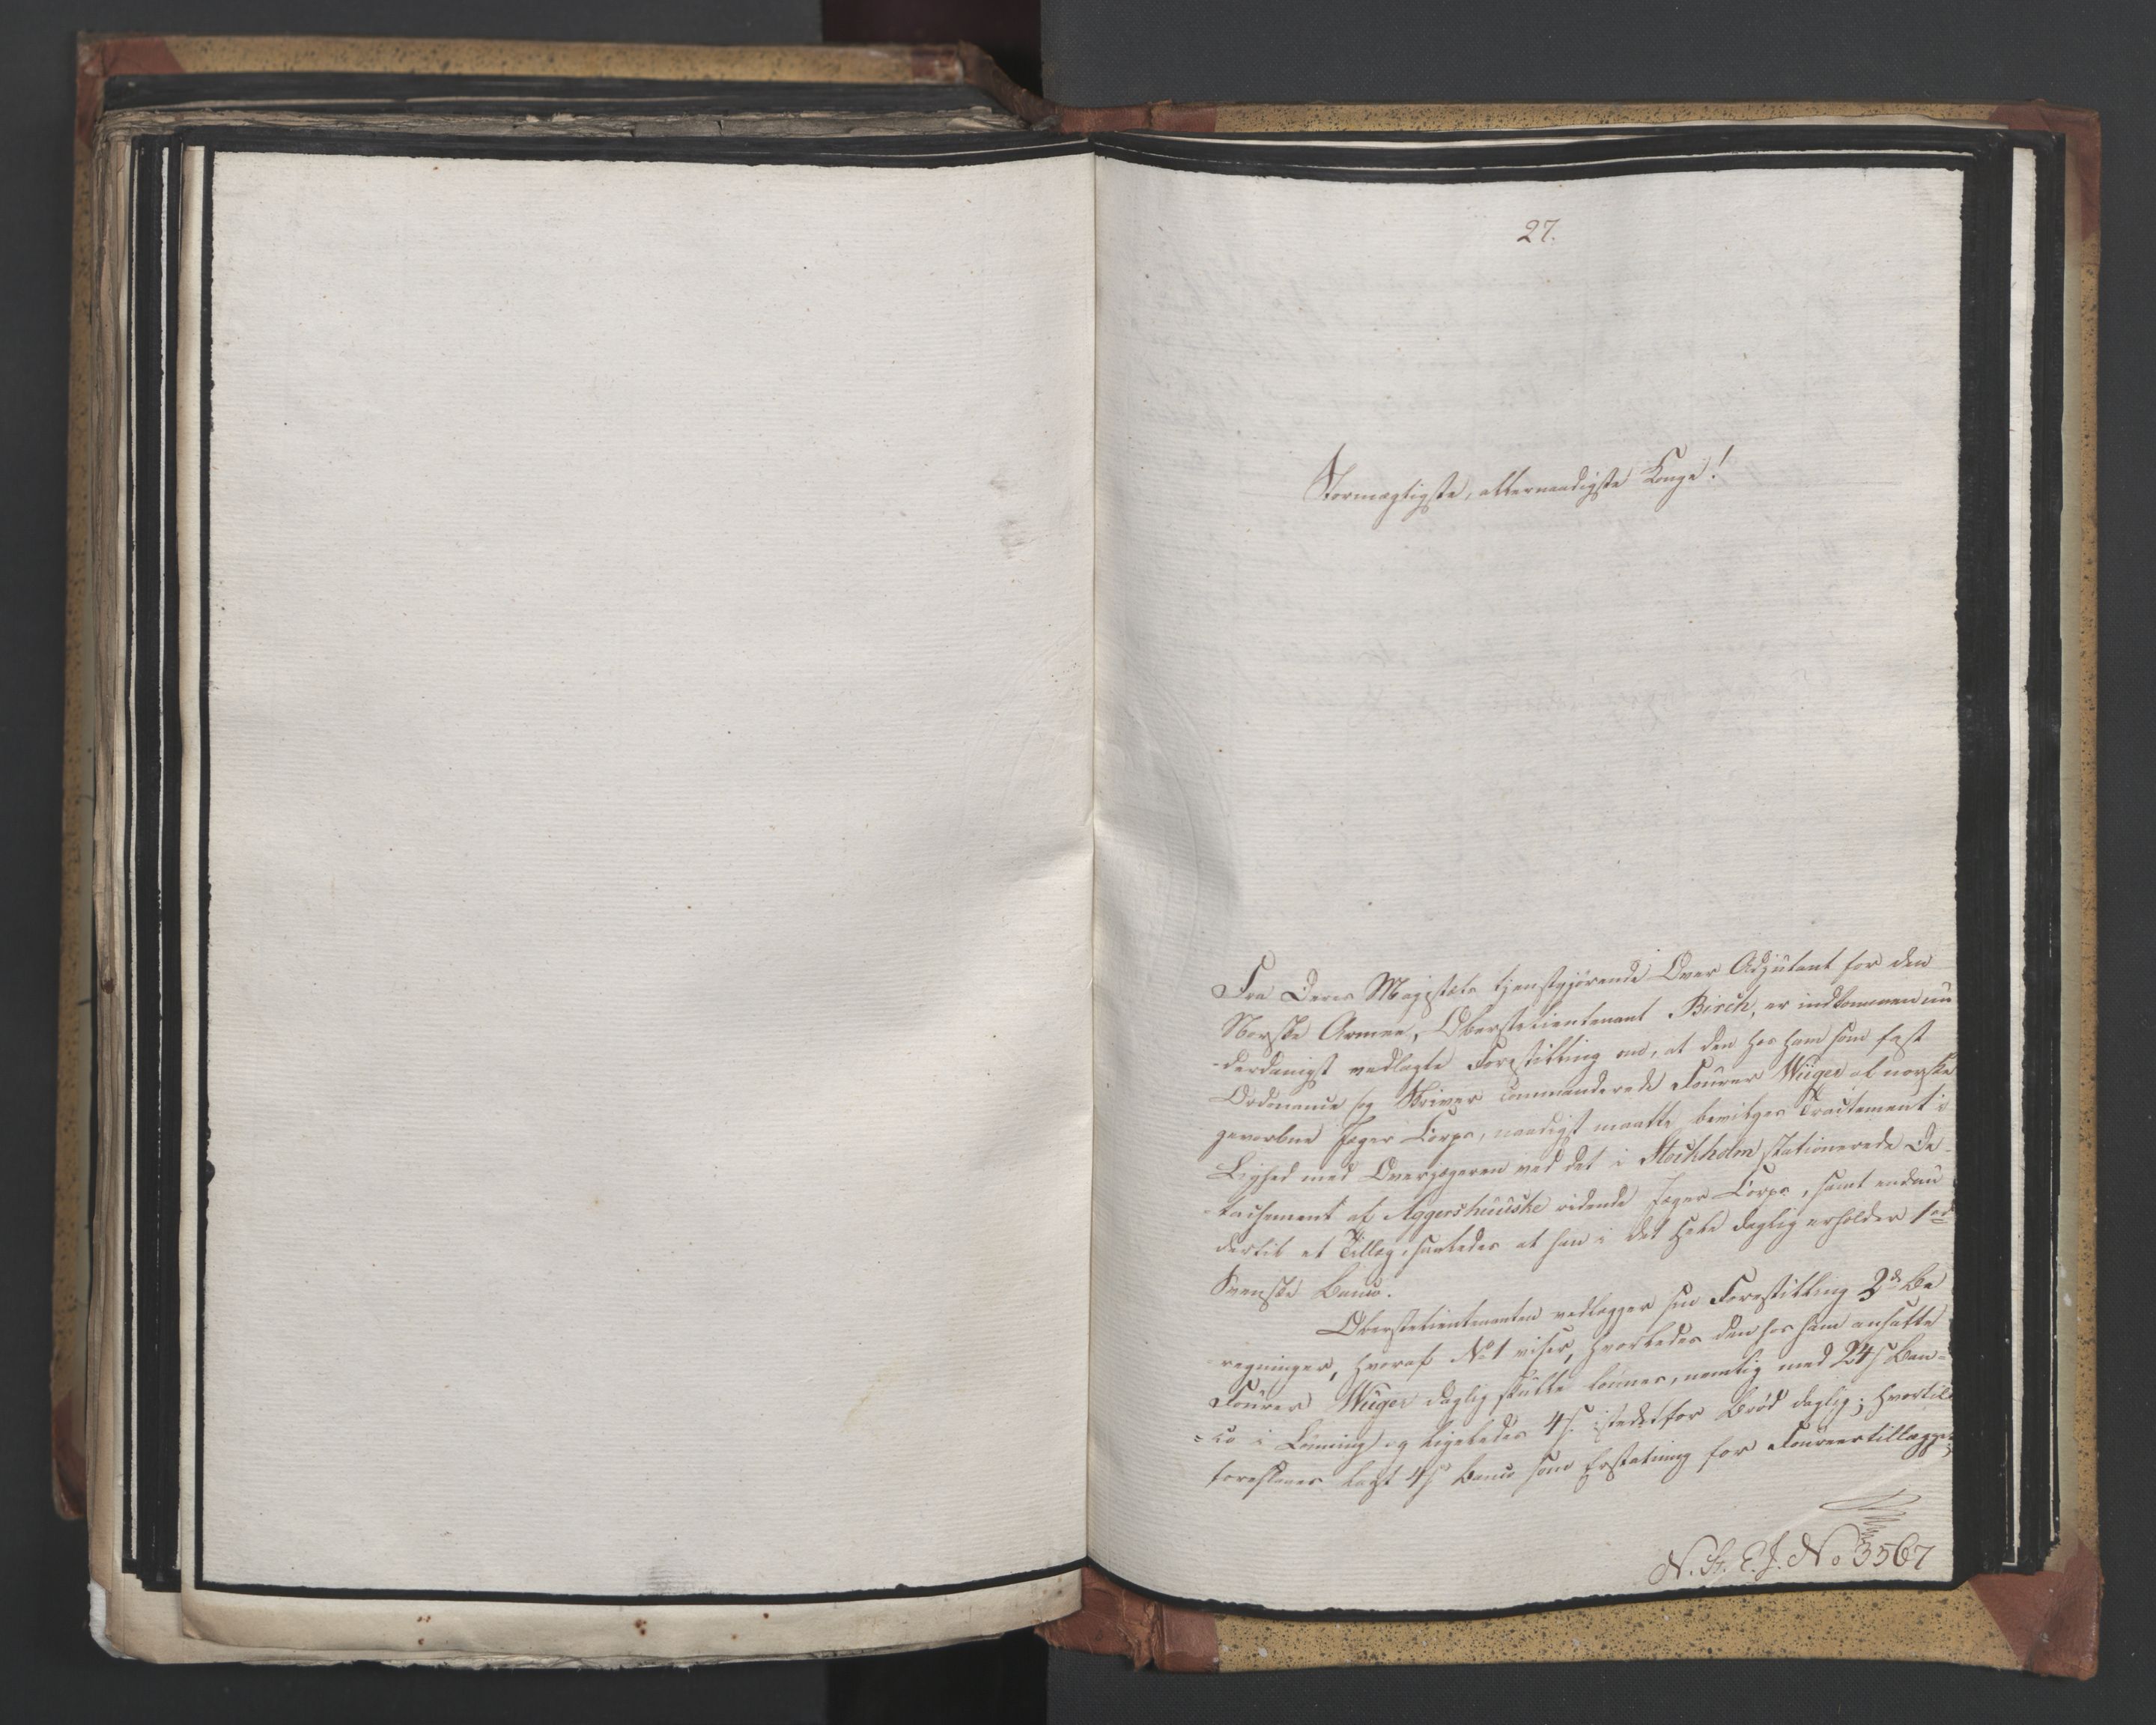 27.
Stormægtigste, allernaadigste Konge!
Fra Deres Majestæts tjenstgjørende Over Adjutant for den
Norske Armee, Oberstlieutenant Birch, er indkommen un
-derdanigst vedlagte Forestilling om, at den hos ham som fast
Ordonance og Skriver commanderede Fourer Wüger af norske
gevorbne Jæger Corps, naadigst maatte bevilges Tractement i
Lighed med Overjægeren ved det i Stockholm stationerede De-
-tachement af Aggershuuske ridende Jæger Corps, samt endnu
dertil et Tillæg, saaledes at han i det Hele daglig erholder 1
Svenske Banco.
Oberstlieutenanten vedlægger sin Forestilling 2de Be
regninger, hvoraf No 1 viser, hvorledes den hos ham ansatte
Fourer Wüger daglig skulle lønnes, nemlig med 24 s Ban-
=co i Lønning og ligeledes 4 s. istedetfor Brød daglig; hvortil
foreslaaes lagt 4 s Banco som Erstatning for Foureertillægget,
N. St. E. J. No 3567